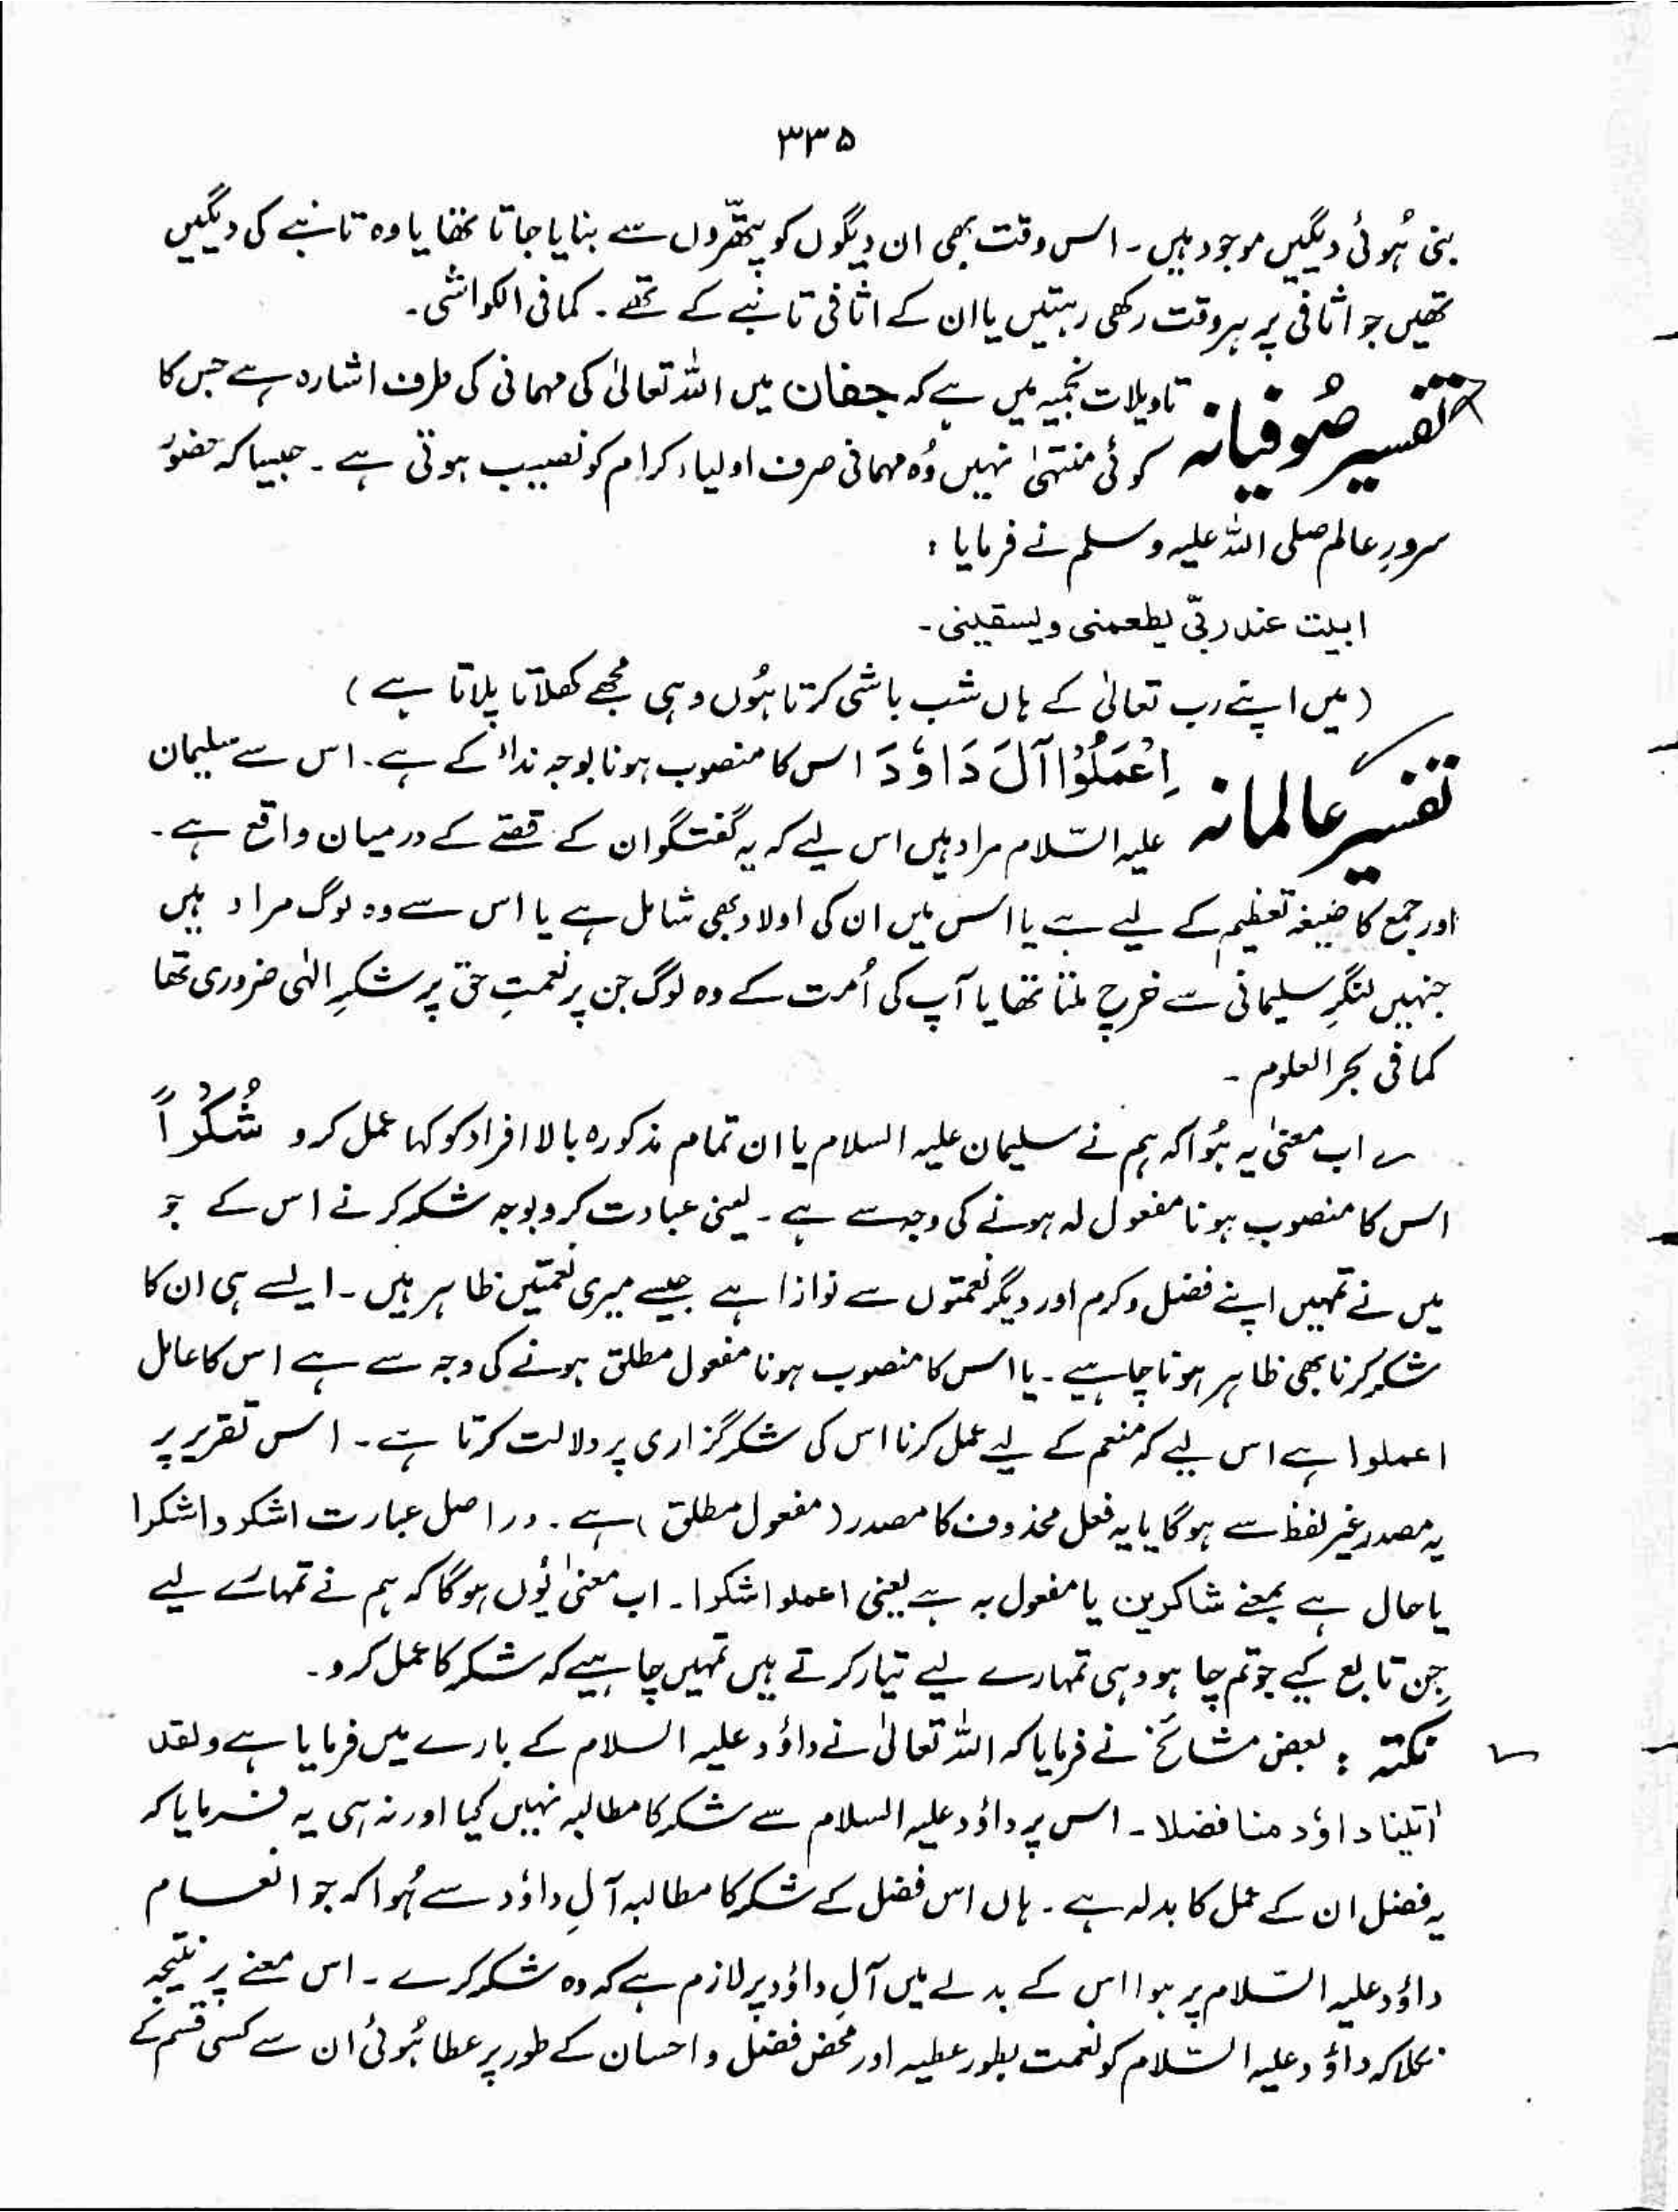 ۳۳۵
بنی ہُوئی دیگیں موجود ہیں۔ اس وقت بھی ان دیگوں کو پتھّروں سے بنایا جاتا تھا یا وہ تانبے کی دیگیں
تھیں جو اثافی پر ہر وقت رکھی رہتیں یا ان کے اثافی تانبے کے تھے۔ کما فی الکواشی۔
تفسیر صُوفیانہ تاویلات نجمیہ میں ہے کہ جفان میں اللہ تعالیٰ کی مہمانی کی طرف اشارہ ہے جس کا
کوئی منتہیٰ نہیں وُہ مہمانی صرف اولیاء کرام کو نصیب ہوتی ہے۔ جیسا کہ حضورؐ
سرورِ عالم صلی اللہ علیہ وسلم نے فرمایا :
ابیت عند ربّی یطعمنی ویسقینی۔
(میں اپنے رب تعالیٰ کے ہاں شب باشی کرتا ہُوں وہی مجھے کھلاتا پلاتا ہے)
تفسیر عالمانہ اِعْمَلُوْا آلَ دَاوٗدَ اس کا منصوب ہونا بوجہ نداء کے ہے۔ اس سے سلیمان
علیہ السّلام مراد ہیں اس لیے کہ یہ گفتگو ان کے قصّے کے درمیان واقع ہے۔
اور جمع کا صیغہ تعظیم کے لیے ہے یا اس میں ان کی اولاد بھی شامل ہے یا اس سے وہ لوگ مراد ہیں
جنہیں لنگرِ سلیمانی سے خرچ ملتا تھا یا آپ کی اُمت کے وہ لوگ جن پر نعمتِ حق پر شکرِ الٰہی ضروری تھا
کما فی بحر العلوم۔
اب معنیٰ یہ ہُوا کہ ہم نے سلیمان علیہ السلام یا ان تمام مذکورہ بالا افراد کو کہا عمل کرو شُكْرًا
اس کا منصوب ہونا مفعول لہ ہونے کی وجہ سے ہے۔ یعنی عبادت کرو بوجہ شکر کرنے اس کے جو
میں نے تمہیں اپنے فضل و کرم اور دیگر نعمتوں سے نوازا ہے جیسے میری نعمتیں ظاہر ہیں۔ ایسے ہی ان کا
شکر کرنا بھی ظاہر ہونا چاہیے۔ یا اس کا منصوب ہونا مفعول مطلق ہونے کی وجہ سے ہے اس کا عامل
اعملوا ہے اس لیے کہ منعم کے لیے عمل کرنا اس کی شکر گزاری پر دلالت کرتا ہے۔ اس تقریر پر
یہ مصدر غیر لفظ سے ہوگا یا یہ فعل محذوف کا مصدر (مفعول مطلق) ہے۔ دراصل عبارت اشکروا شکرا
یا حال ہے بمعنے شاکرین یا مفعول بہ ہے یعنی اعملوا شکرا۔ اب معنیٰ یُوں ہوگا کہ ہم نے تمہارے لیے
جِن تابع کیے جو تم چاہو وہی تمہارے لیے تیار کرتے ہیں تمہیں چاہیے کہ شکر کا عمل کرو۔
نکتہ : بعض مشائخ نے فرمایا کہ اللہ تعالیٰ نے داؤد علیہ السلام کے بارے میں فرمایا ہے ولقد
اٰتینا داؤد منا فضلا۔ اس پر داؤد علیہ السلام سے شکر کا مطالبہ نہیں کیا اور نہ ہی یہ فرمایا کہ
یہ فضل ان کے عمل کا بدلہ ہے۔ ہاں اس فضل کے شکر کا مطالبہ آلِ داؤد سے ہُوا کہ جو انعام
داؤد علیہ السّلام پر ہوا اس کے بدلے میں آلِ داؤد پر لازم ہے کہ وہ شکر کرے۔ اس معنے پر نتیجہ
نکلا کہ داؤد علیہ السّلام کو نعمت بطور عطیہ اور محض فضل و احسان کے طور پر عطا ہُوئی ان سے کسی قسم کے